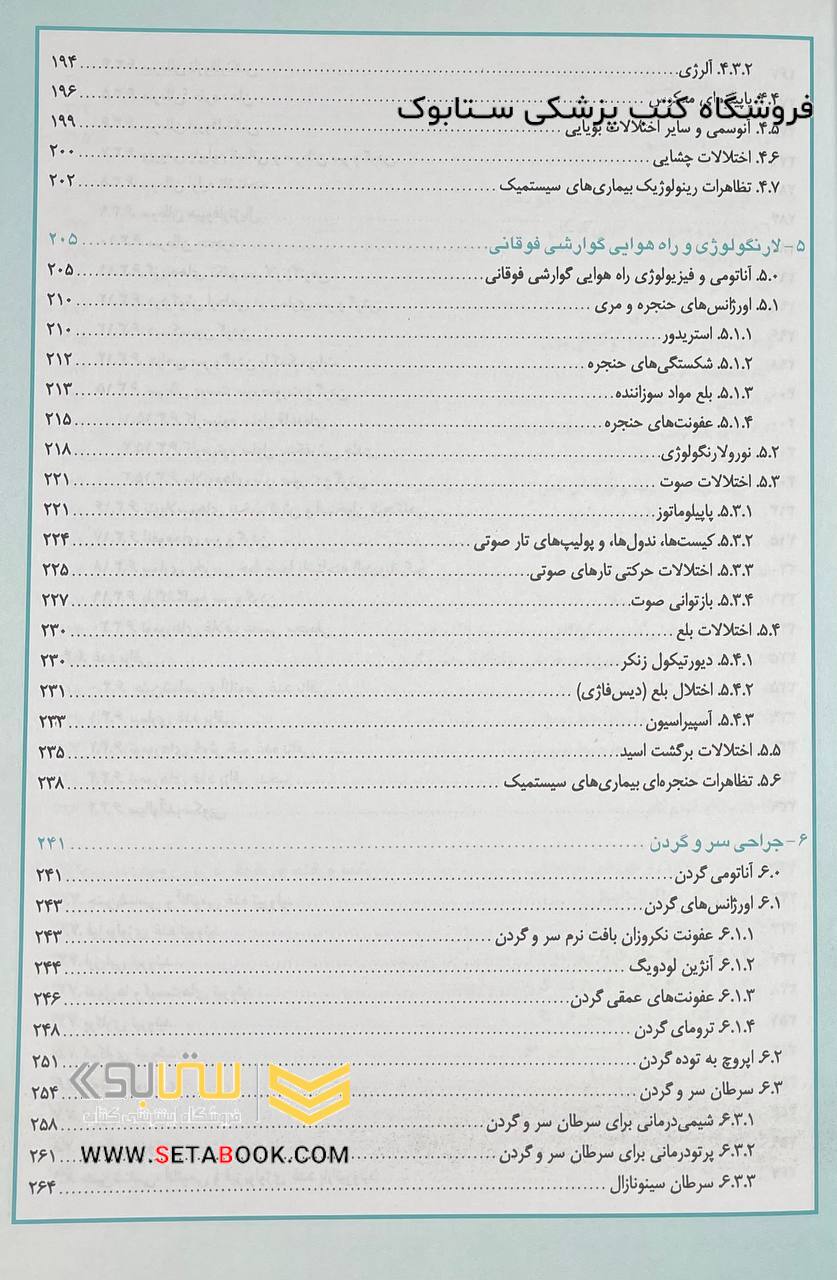 ۴.۳.۲. آلرژی ... ۱۹۴
۴.۴. پاپیلومای معکوس ... ۱۹۶
فروشگاه کتب پزشکی ستابوک
۴.۵. آنوسمی و سایر اختلالات بویایی ... ۱۹۹
۴.۶. اختلالات چشایی ... ۲۰۰
۴.۷. تظاهرات رینولوژیک بیماری‌های سیستمیک ... ۲۰۲
۵- لارنگولوژی و راه هوایی گوارشی فوقانی ... ۲۰۵
۵.۰. آناتومی و فیزیولوژی راه هوایی گوارشی فوقانی ... ۲۰۵
۵.۱. اورژانس‌های حنجره و مری ... ۲۱۰
۵.۱.۱. استریدور ... ۲۱۰
۵.۱.۲. شکستگی‌های حنجره ... ۲۱۲
۵.۱.۳. بلع مواد سوزاننده ... ۲۱۳
۵.۱.۴. عفونت‌های حنجره ... ۲۱۵
۵.۲. نورولارنگولوژی ... ۲۱۸
۵.۳. اختلالات صوت ... ۲۲۱
۵.۳.۱. پاپیلوماتوز ... ۲۲۱
۵.۳.۲. کیست‌ها، ندول‌ها، و پولیپ‌های تار صوتی ... ۲۲۴
۵.۳.۳. اختلالات حرکتی تارهای صوتی ... ۲۲۵
۵.۳.۴. بازتوانی صوت ... ۲۲۷
۵.۴. اختلالات بلع ... ۲۳۰
۵.۴.۱. دیورتیکول زنکر ... ۲۳۰
۵.۴.۲. اختلال بلع (دیس‌فاژی) ... ۲۳۱
۵.۴.۳. آسپیراسیون ... ۲۳۳
۵.۵. اختلالات برگشت اسید ... ۲۳۵
۵.۶. تظاهرات حنجره‌ای بیماری‌های سیستمیک ... ۲۳۸
۶- جراحی سر و گردن ... ۲۴۱
۶.۰. آناتومی گردن ... ۲۴۱
۶.۱. اورژانس‌های گردن ... ۲۴۳
۶.۱.۱. عفونت نکروزان بافت نرم سر و گردن ... ۲۴۳
۶.۱.۲. آنژین لودویگ ... ۲۴۴
۶.۱.۳. عفونت‌های عمقی گردن ... ۲۴۶
۶.۱.۴. ترومای گردن ... ۲۴۸
۶.۲. اپروچ به توده گردن ... ۲۵۱
۶.۳. سرطان سر و گردن ... ۲۵۴
ستابوک
فروشگاه اینترنتی کتاب
۶.۳.۱. شیمی‌درمانی برای سرطان سر و گردن ... ۲۵۸
۶.۳.۲. پرتودرمانی برای سرطان سر و گردن ... ۲۶۱
WWW.SETABOOK.COM
۶.۳.۳. سرطان سینونازال ... ۲۶۴